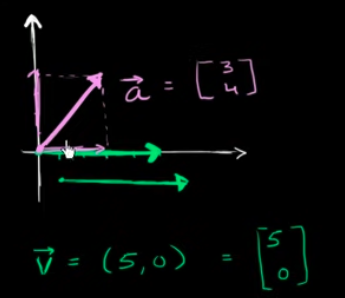 a⃗ = [3 4]
v⃗ = (5,0) = [5 0]